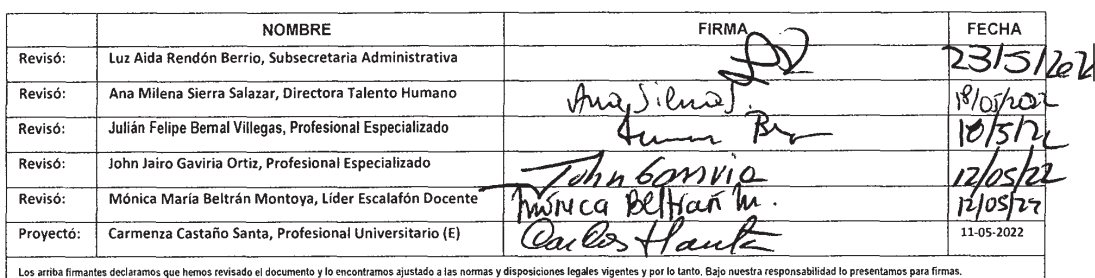 NOMBRE FIRMA FECHA
Revisó: Luz Aida Rendón Berrio, Subsecretaria Administrativa 23/5/202
Revisó: Ana Milena Sierra Salazar, Directora Talento Humano Ana Silena S. 18/05/2022
Revisó: Julián Felipe Bernal Villegas, Profesional Especializado 18/5/22
Revisó: John Jairo Gaviria Ortiz, Profesional Especializado John Gaviria 12/05/22
Revisó: Mónica María Beltrán Montoya, Líder Escalafón Docente Mónica Beltrán M. 12/05/22
Proyectó: Carmenza Castaño Santa, Profesional Universitario (E) 11-05-2022
Los arriba firmantes declaramos que hemos revisado el documento y lo encontramos ajustado a las normas y disposiciones legales vigentes y por lo tanto, Bajo nuestra responsabilidad lo presentamos para firmas.